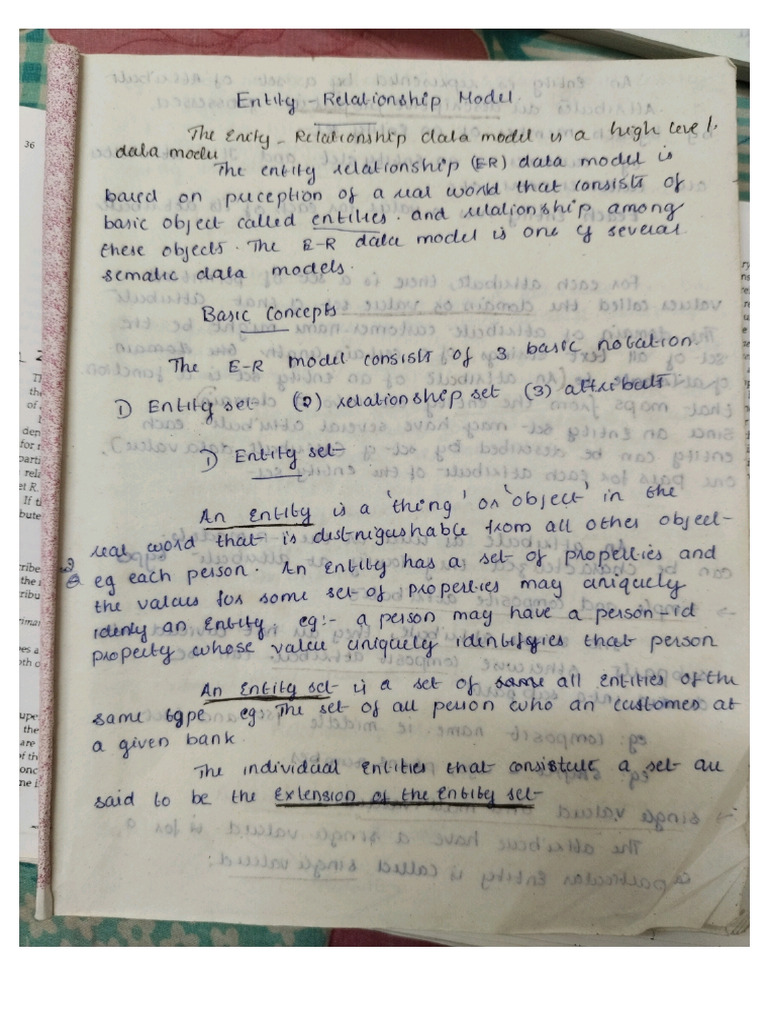 Entity - Relationship Model
The Encty - Relationship data model is a high level
data model
The entity relationship (ER) data model is
based on perception of a real world that consists of
basic object called entities. and relationship among
these objects. The E-R data model is one of several
sematic data models.
Basic Concepts
The E-R model consists of 3 basic notation
1) Entity set (2) relationship set (3) attribute
1) Entity set
An entity is a 'thing' or 'object' in the
real word that is distnigushable from all other object
eg each person. An Entity has a set of properties and
the values for some set of properties may uniquely
idenly an Entity. eg:- a person may have a person-id
property whose value uniquely identifies that person
An Entity set is a set of same all Entities of the
same type eg The set of all person who an customer at
a given bank.
The individual Entities that consistute a set are
said to be the Extension of the Entity set
36